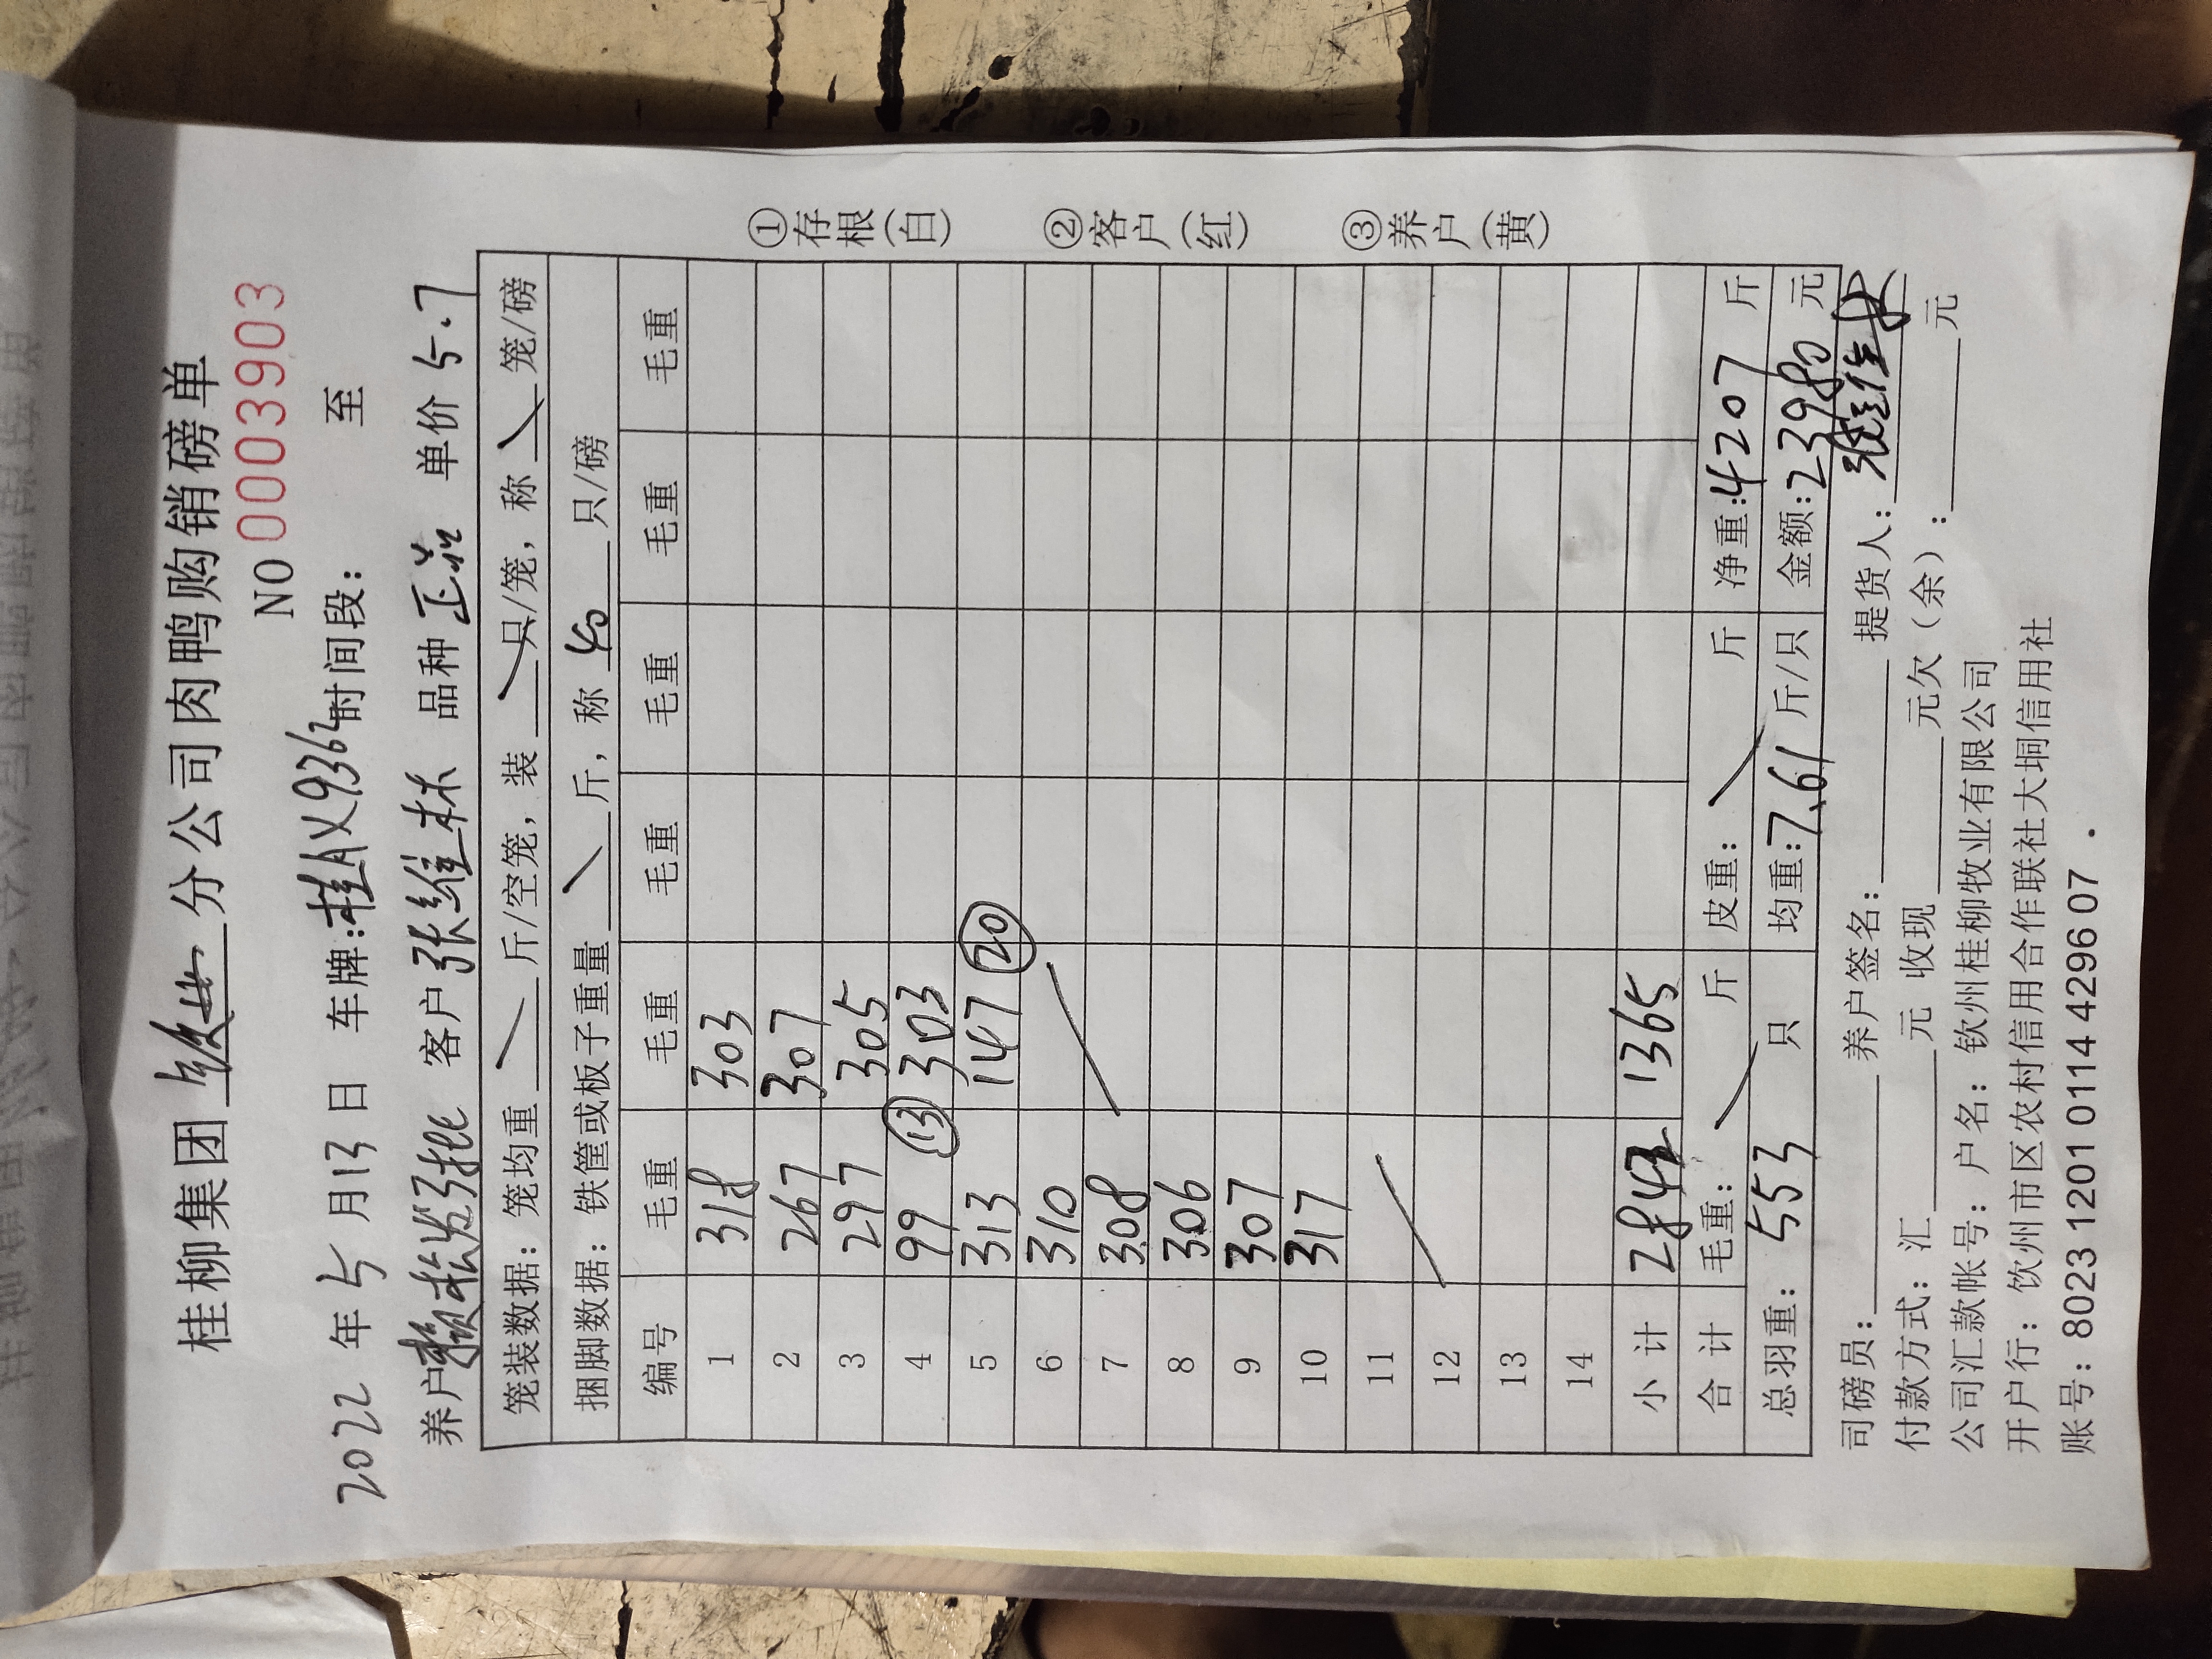 桂柳集团 分公司肉鸭购销磅单
NO 0003903
2022 年 5 月 13 日 车牌:桂AX9362 时间段: 至
养户 客户 张维林 品种 正品 单价 5.7
笼装数据: 笼均重 斤/空笼, 装 只/笼, 称 笼/磅
捆脚数据: 铁筐或板子重量 斤, 称 40 只/磅
编号 毛重 毛重 毛重 毛重 毛重 毛重
1 318 303
2 267 307
3 297 305
4 99 ⑬ 303
5 313 147 ⑳
6 310
7 308
8 306
9 307
10 317
11
12
13
14
小计 2842 1365
合计 毛重: 斤 皮重: 斤 净重:4207 斤
总羽重: 553 只 均重:7.61 斤/只 金额:23980 元
司磅员: 养户签名: 提货人: 张维林
付款方式: 汇 元 收现 元欠(余): 元
公司汇款帐号: 户名: 钦州桂柳牧业有限公司
开户行: 钦州市区农村信用合作联社大垌信用社
账号: 8023 1201 0114 4296 07 .
①存根(白) ②客户(红) ③养户(黄)